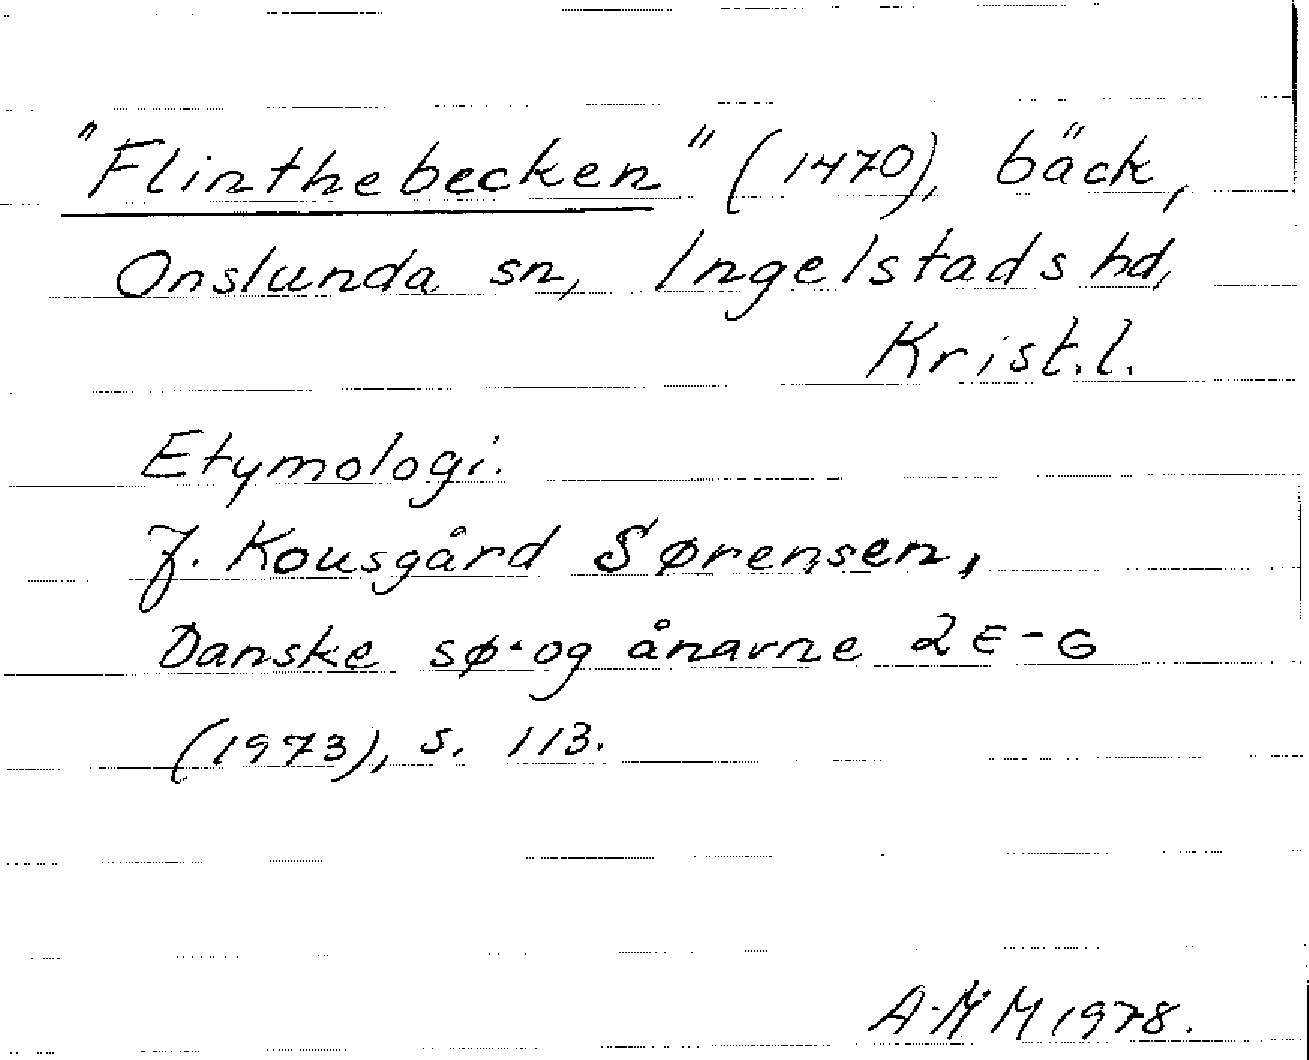 "Flinthebecken" (1470), bäck,
Onslunda sn, Ingelstads hd,
Krist.l.
Etymologi.
J. Kousgård Sørensen,
Danske sø- og ånavne 2 E-G
(1973), s. 113.
A-M M 1978.